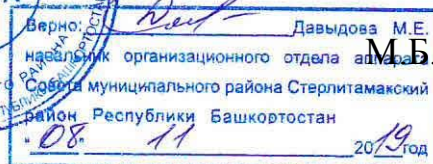 Верно: Давыдова М.Е.
начальник организационного отдела аппарата
М.Б.
Совета муниципального района Стерлитамакский
район Республики Башкортостан
"08" 11 2019 год